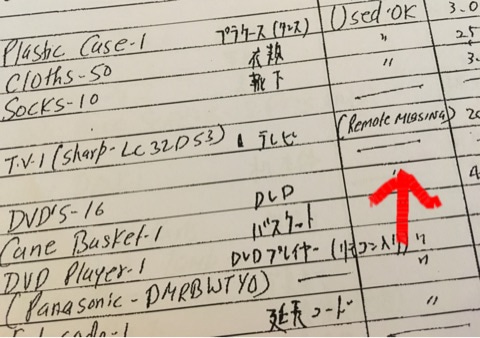 Used·OK 3.0
Plastic Case-1 プラケース(タンス) 〃 25
Cloths-50 衣類 〃 3.
Socks-10 靴下
T.V-1 (Sharp-LC32D53) テレビ (Remote MISSING) 20
DVD'S-16 DVD 〃 4
Cane Basket-1 バスケット
DVD Player-1 DVDプレイヤー (リモコン入り) 〃
(Panasonic-DMRBWTYO) 〃
延長コード 〃